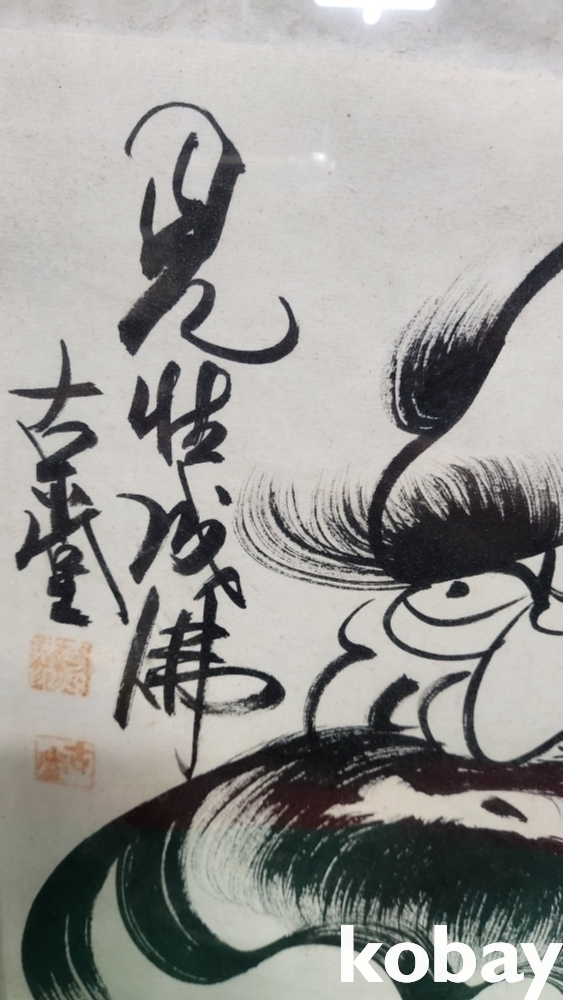 見性成佛
古
kobay